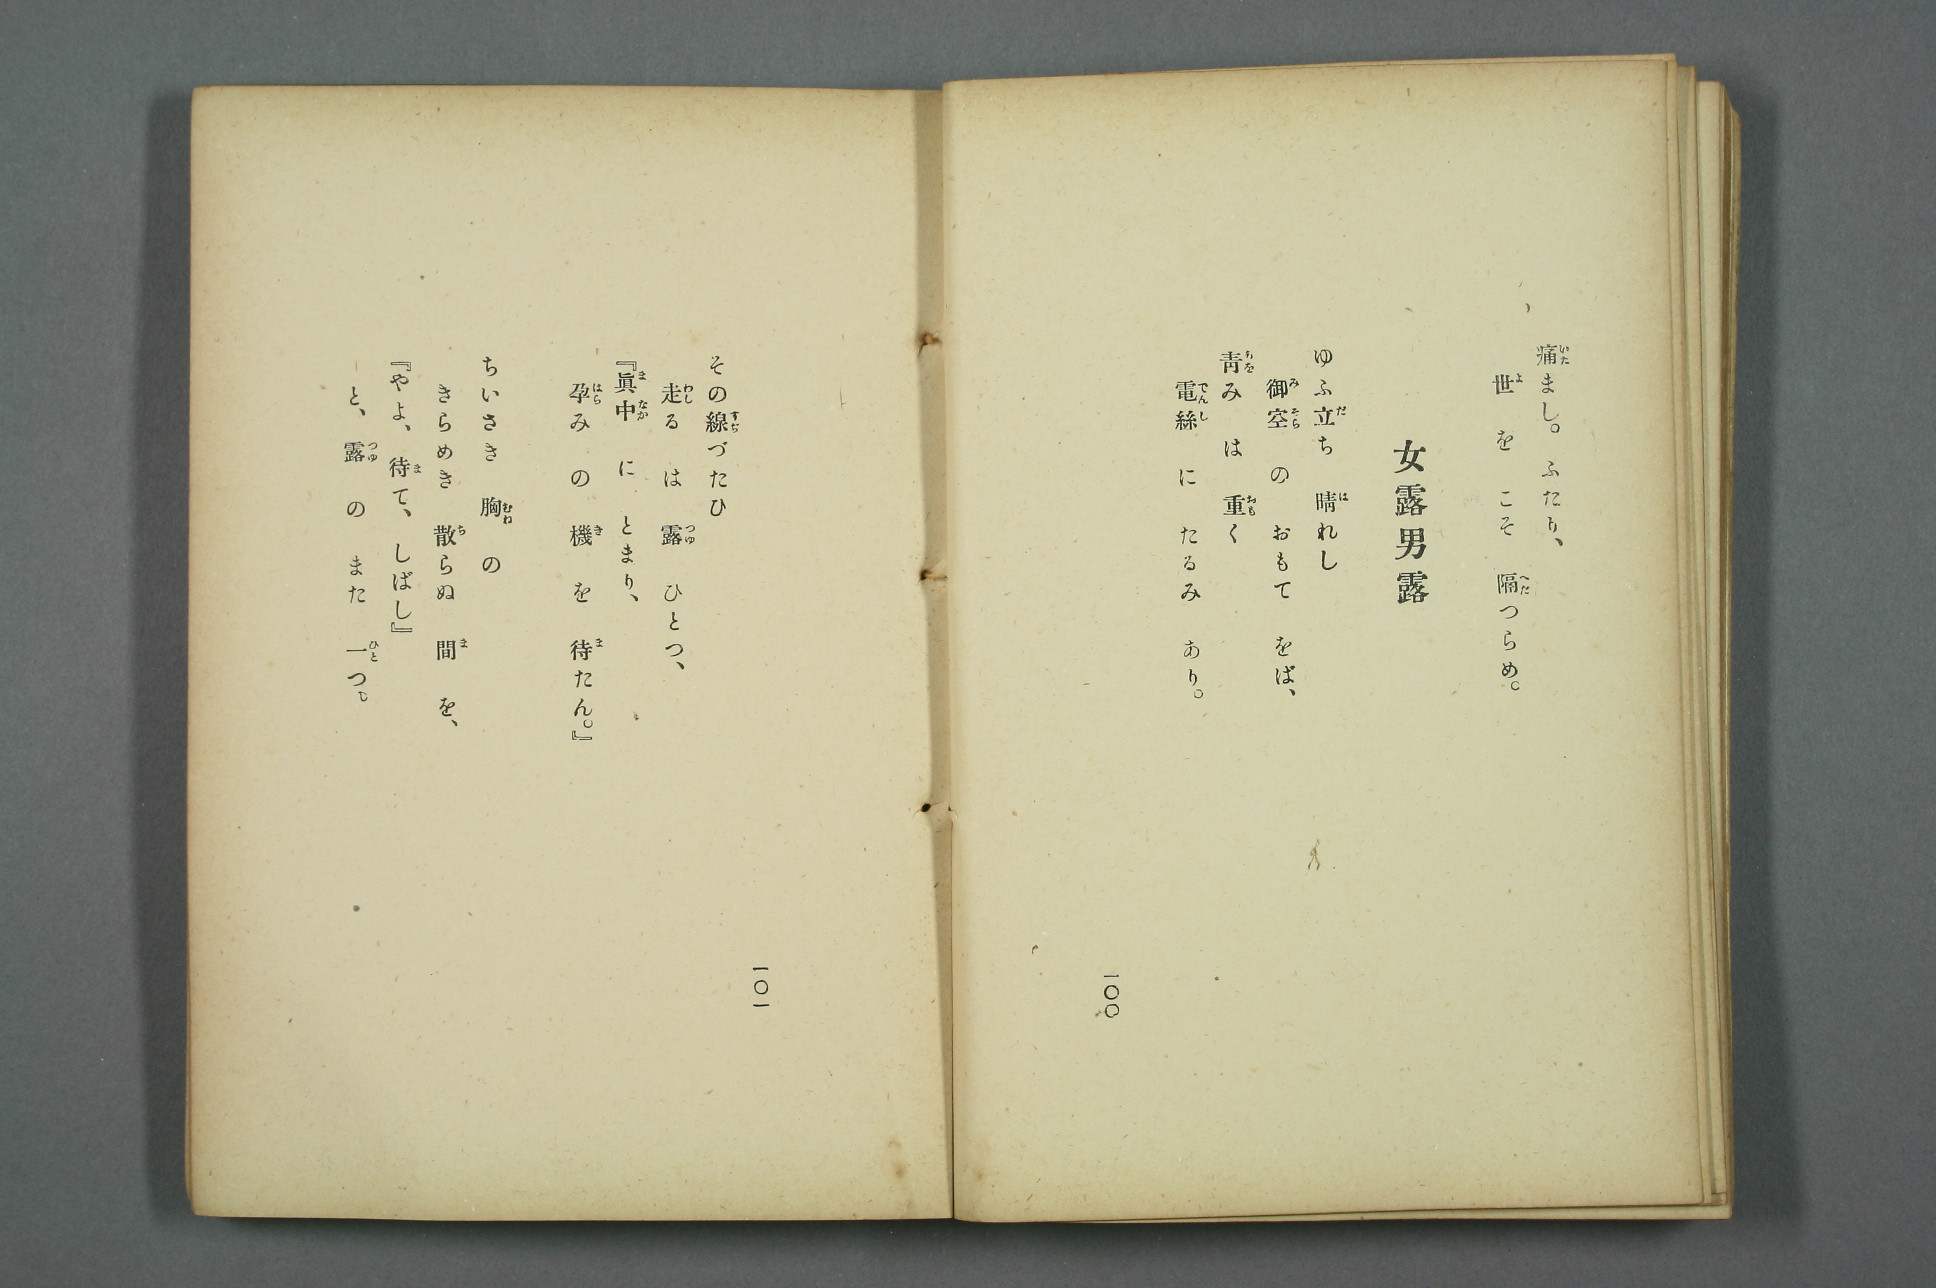 痛まし。ふたり、
世をこそ隔つらめ。
女露男露
ゆふ立ち晴れし
御空のおもてをば、
靑みは重く
電絲にたるみあり。
一〇〇
その線づたひ
走るは露ひとつ、
『眞中にとまり、
孕みの機を待たん。』
ちいさき胸の
きらめき散らぬ間を、
『やよ、待て、しばし』
と、露のまた一つ。
一〇一